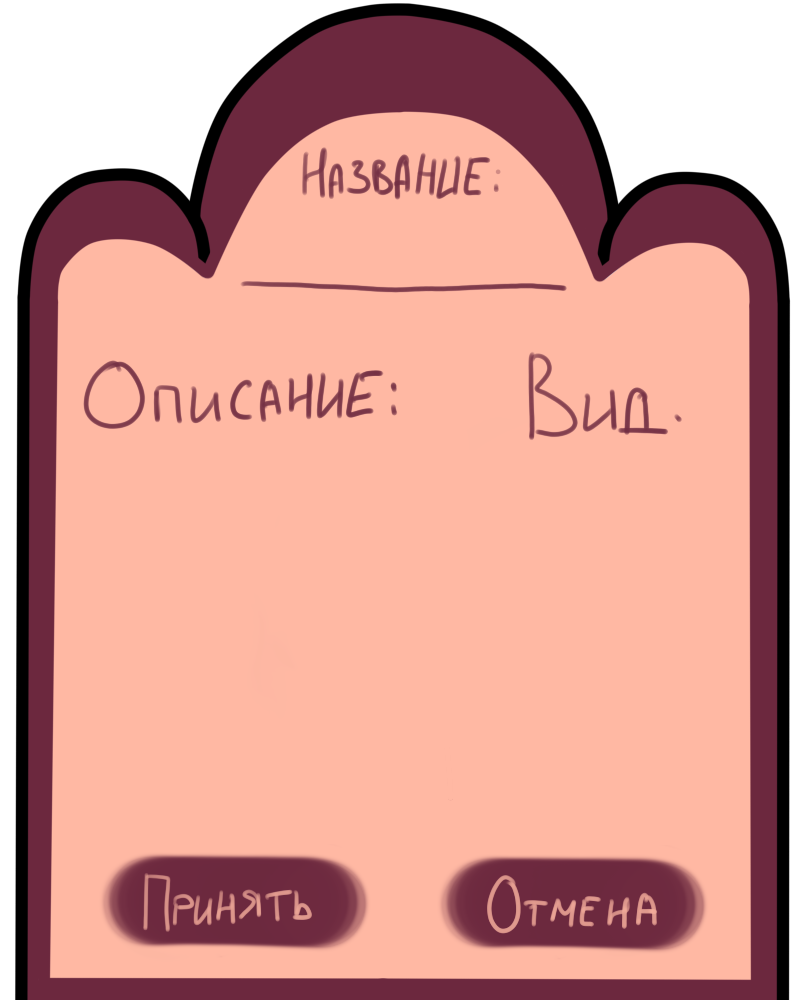 Название:
Описание: Вид.
Принять Отмена